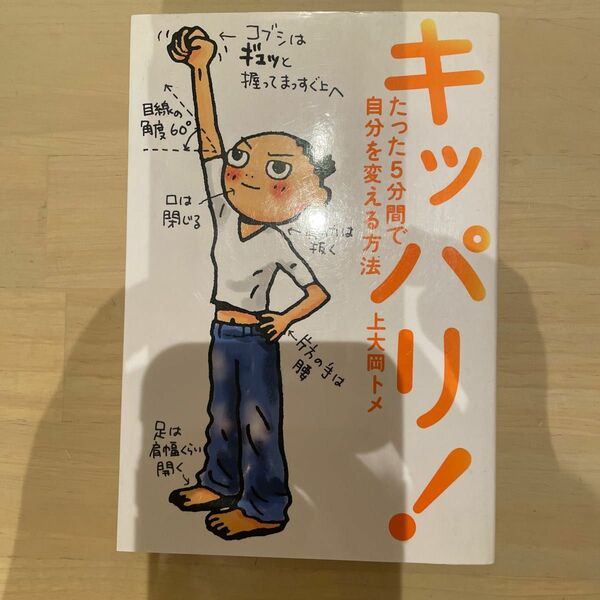 キッパリ!
たった5分間で
自分を変える方法
上大岡トメ
コブシは
ギュッと
握ってまっすぐ上へ
目線の
角度60°
口は
閉じる
は
抜く
片方の手は
腰
足は
肩幅くらい
開く